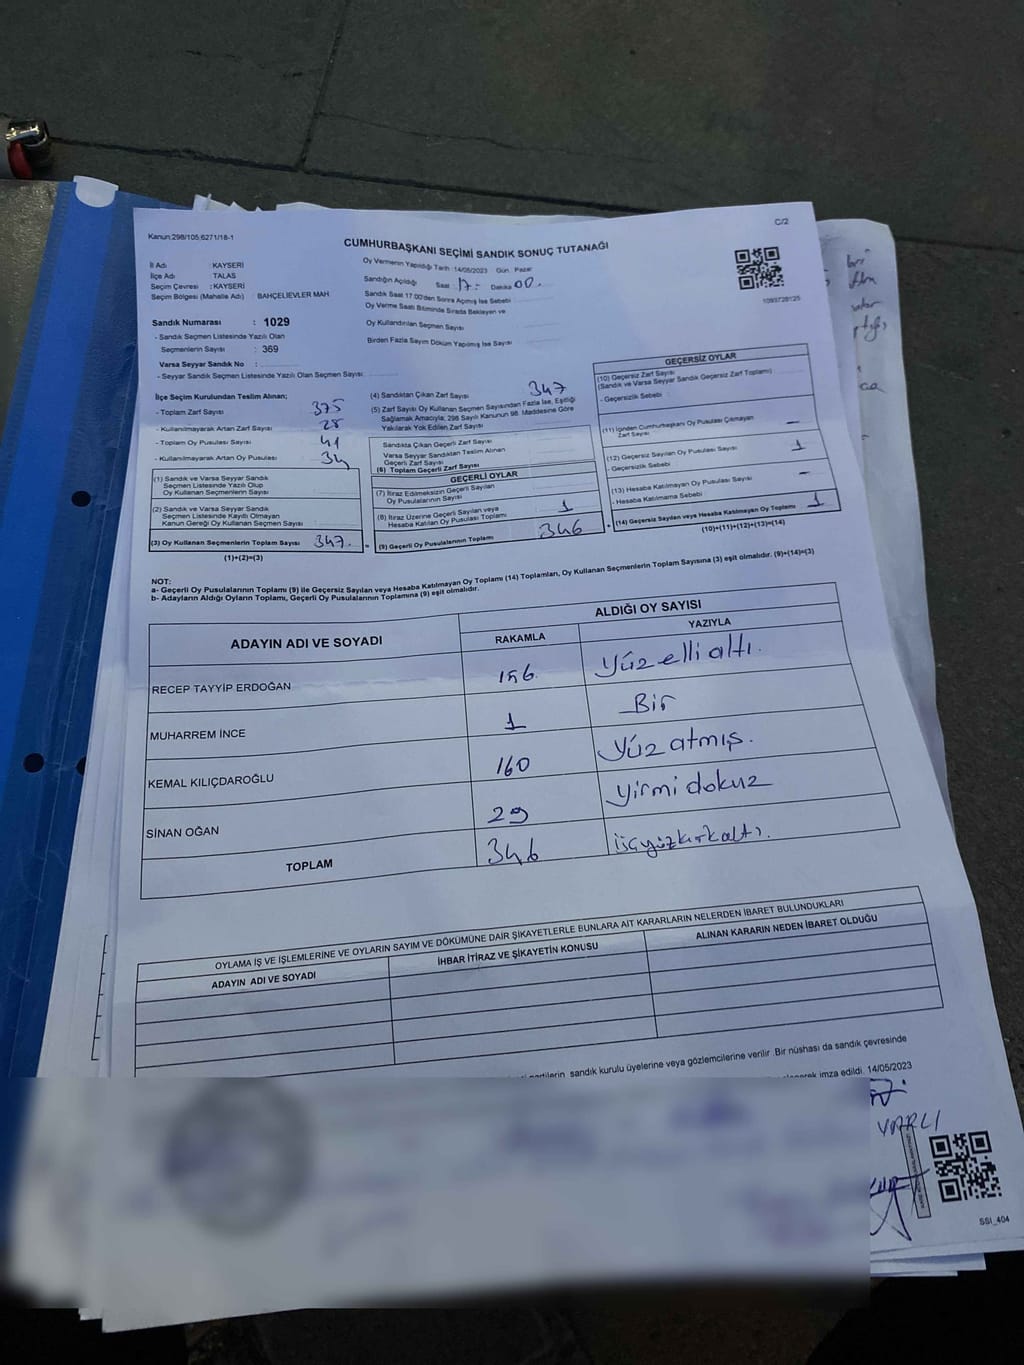 C/2
Kanun:298/105;6271/18-1
CUMHURBAŞKANI SEÇİMİ SANDIK SONUÇ TUTANAĞI
İl Adı : KAYSERİ
İlçe Adı : TALAS
Seçim Çevresi : KAYSERİ
Seçim Bölgesi (Mahalle Adı) BAHÇELİEVLER MAH
Sandık Numarası : 1029
- Sandık Seçmen Listesinde Yazılı Olan
Seçmenlerin Sayısı : 369
Varsa Seyyar Sandık No :
- Seyyar Sandık Seçmen Listesinde Yazılı Olan Seçmen Sayısı
Oy Vermenin Yapıldığı Tarih :14/05/2023 Gün : Pazar
Sandığın Açıldığı Saat 17:- Dakika 00.
Sandık Saat 17.00'den Sonra Açılmış İse Sebebi
Oy Verme Saati Bitiminde Sırada Bekleyen ve
Oy Kullandırılan Seçmen Sayısı
Birden Fazla Sayım Döküm Yapılmış İse Sayısı
1093728125
İlçe Seçim Kurulundan Teslim Alınan;
- Toplam Zarf Sayısı 375
- Kullanılmayarak Artan Zarf Sayısı 28
- Toplam Oy Pusulası Sayısı
- Kullanılmayarak Artan Oy Pusulası
(1) Sandık ve Varsa Seyyar Sandık
Seçmen Listesinde Yazılı Olup
Oy Kullanan Seçmenlerin Sayısı
(2) Sandık ve Varsa Seyyar Sandık
Seçmen Listesinde Kayıtlı Olmayan
Kanun Gereği Oy Kullanan Seçmen Sayısı
(3) Oy Kullanan Seçmenlerin Toplam Sayısı 347.
(1)+(2)=(3)
(4) Sandıktan Çıkan Zarf Sayısı 347
(5) Zarf Sayısı Oy Kullanan Seçmen Sayısından Fazla İse, Eşitliği
Sağlamak Amacıyla; 298 Sayılı Kanunun 98. Maddesine Göre
Yakılarak Yok Edilen Zarf Sayısı
Sandıkta Çıkan Geçerli Zarf Sayısı
Varsa Seyyar Sandıktan Teslim Alınan
Geçerli Zarf Sayısı
(6) Toplam Geçerli Zarf Sayısı
GEÇERLİ OYLAR
(7) İtiraz Edilmeksizin Geçerli Sayılan
Oy Pusulalarının Sayısı
(8) İtiraz Üzerine Geçerli Sayılan veya
Hesaba Katılan Oy Pusulası Toplamı 1
(9) Geçerli Oy Pusulalarının Toplamı 346
GEÇERSİZ OYLAR
(10) Geçersiz Zarf Sayısı
(Sandık ve Varsa Seyyar Sandık Geçersiz Zarf Toplamı)
- Geçersizlik Sebebi
(11) İçinden Cumhurbaşkanı Oy Pusulası Çıkmayan
Zarf Sayısı -
(12) Geçersiz Sayılan Oy Pusulası Sayısı 1
- Geçersizlik Sebebi
(13) Hesaba Katılmayan Oy Pusulası Sayısı -
- Hesaba Katılmama Sebebi
(14) Geçersiz Sayılan veya Hesaba Katılmayan Oy Toplamı 1
(10)+(11)+(12)+(13)=(14)
NOT:
a- Geçerli Oy Pusulalarının Toplamı (9) ile Geçersiz Sayılan veya Hesaba Katılmayan Oy Toplamı (14) Toplamları, Oy Kullanan Seçmenlerin Toplam Sayısına (3) eşit olmalıdır. (9)+(14)=(3)
b- Adayların Aldığı Oyların Toplamı, Geçerli Oy Pusulalarının Toplamına (9) eşit olmalıdır.
ADAYIN ADI VE SOYADI
ALDIĞI OY SAYISI
RAKAMLA YAZIYLA
RECEP TAYYİP ERDOĞAN 156 Yüz elli altı.
MUHARREM İNCE 1 Bir
KEMAL KILIÇDAROĞLU 160 Yüz atmış.
SİNAN OĞAN 29 Yirmi dokuz
TOPLAM 346 üçyüzkırkaltı.
OYLAMA İŞ VE İŞLEMLERİNE VE OYLARIN SAYIM VE DÖKÜMÜNE DAİR ŞİKAYETLERLE BUNLARA AİT KARARLARIN NELERDEN İBARET BULUNDUKLARI
ADAYIN ADI VE SOYADI İHBAR İTİRAZ VE ŞİKAYETİN KONUSU ALINAN KARARIN NEDEN İBARET OLDUĞU
sandık kurulu üyelerine veya gözlemcilerine verilir. Bir nüshası da sandık çevresinde
imza edildi. 14/05/2023
VARLI
SSI_404